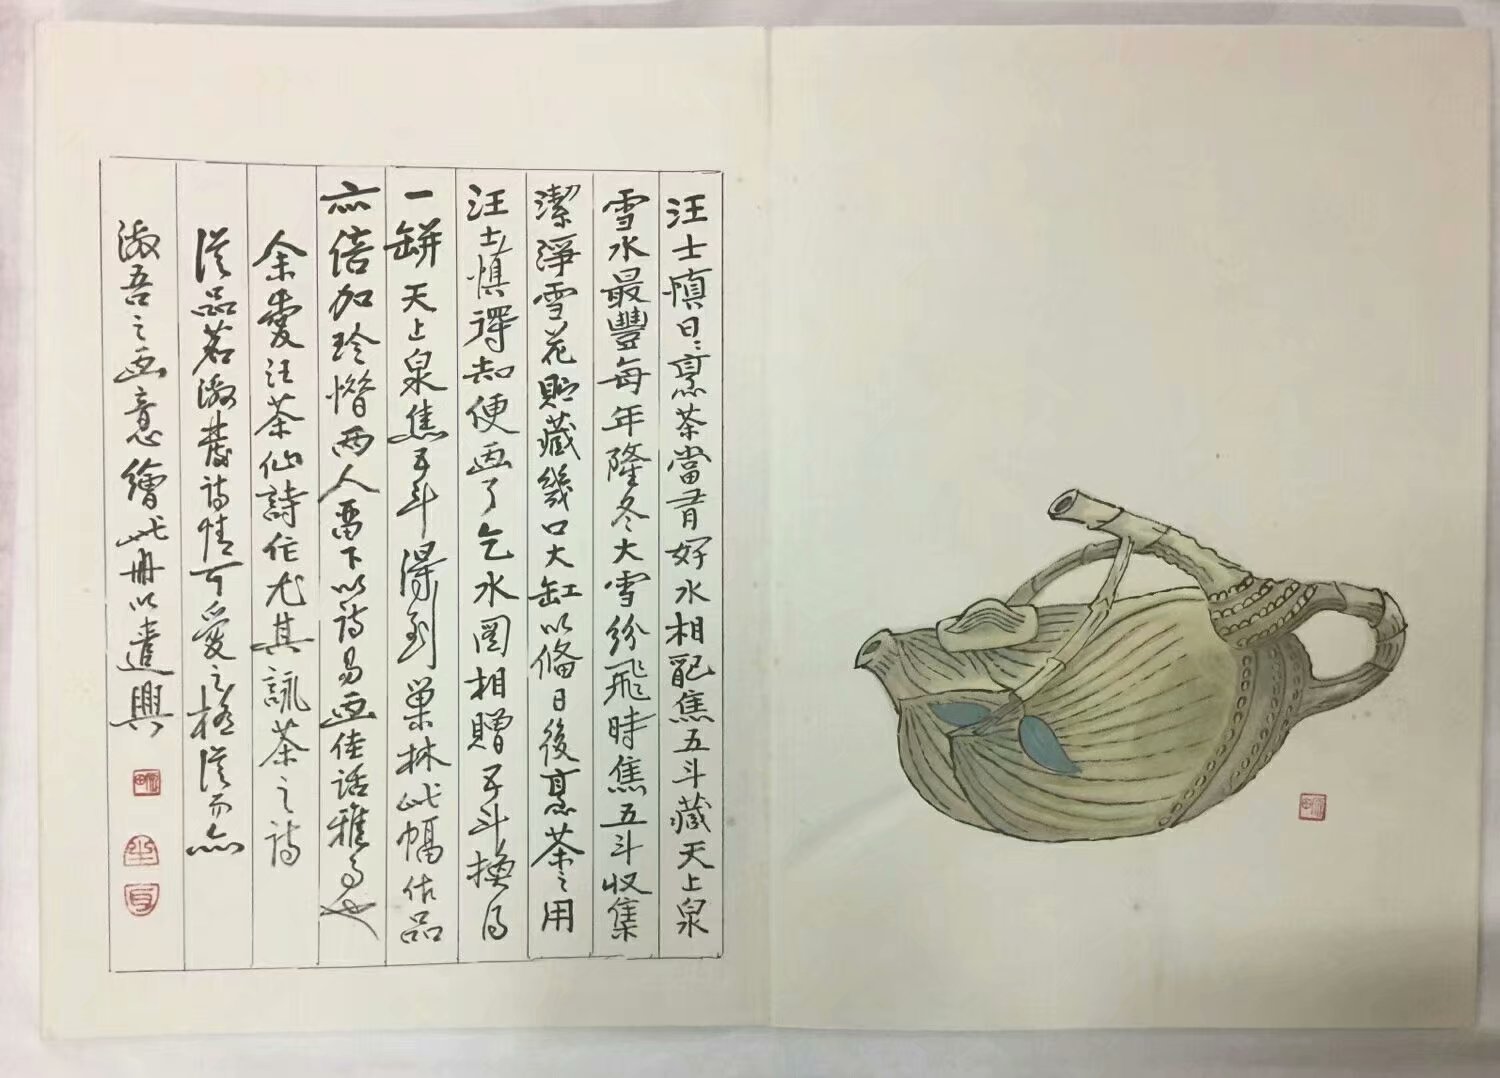 汪士慎日日烹茶當有好水相配焦五斗藏天上泉
雪水最豐每年隆冬大雪紛飛時焦五斗收集
潔淨雪花貯藏幾口大缸以備日後烹茶之用
汪士慎得知便画了乞水圖相贈五斗换得
一缾天上泉焦五斗得到巢林此幅作品
亦倍加珍惜两人留下以詩易画佳話雅事也
余愛汪茶仙詩作尤其詠茶之詩
從品茗激發詩情可愛之極從而亦
激吾之画意繪此册以遣興